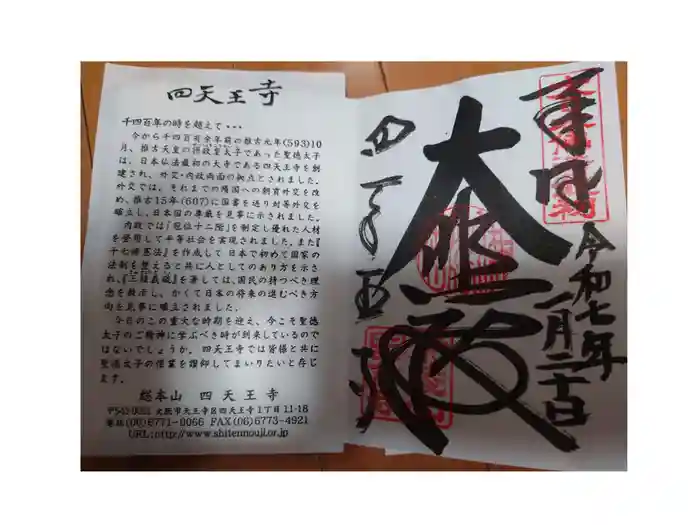 四天王寺
千四百年の時を超えて・・・
今から千四百有余年前の推古元年(593)10
月、推古天皇の摂政皇太子であった聖徳太子
は、日本仏法最初の大寺である四天王寺を創
建され、外交・内政両面の拠点とされました。
外交では、それまでの隋国への朝貢外交を改
め、推古15年(607)に国書を送り対等外交を
確立し、日本国の尊厳を見事に示されました。
内政では『冠位十二階』を制定し優れた人材
を登用して平等社会を実現されました。また『
十七条憲法』を作成して日本で初めて国家の
法制を整えると共に人としてのあり方を示さ
れ、『三経義疏』を著しては、国民の持つべき理
想を教示し、かくて日本の将来の進むべき方
向を見事に確立されました。
今日のこの重大な時期を迎え、今こそ聖徳
太子のご精神に学ぶべき時が到来しているので
はないでしょうか。四天王寺では皆様と共に
聖徳太子の偉業を讃仰してまいりたいと存じ
ます。
総本山 四天王寺
大阪市天王寺区四天王寺1丁目11-18
電話(06)6771-0066 FAX(06)6773-4921
URL:http://www.shitennouji.or.jp
奉拝
令和七年
一月二十日
大黒
四天王寺